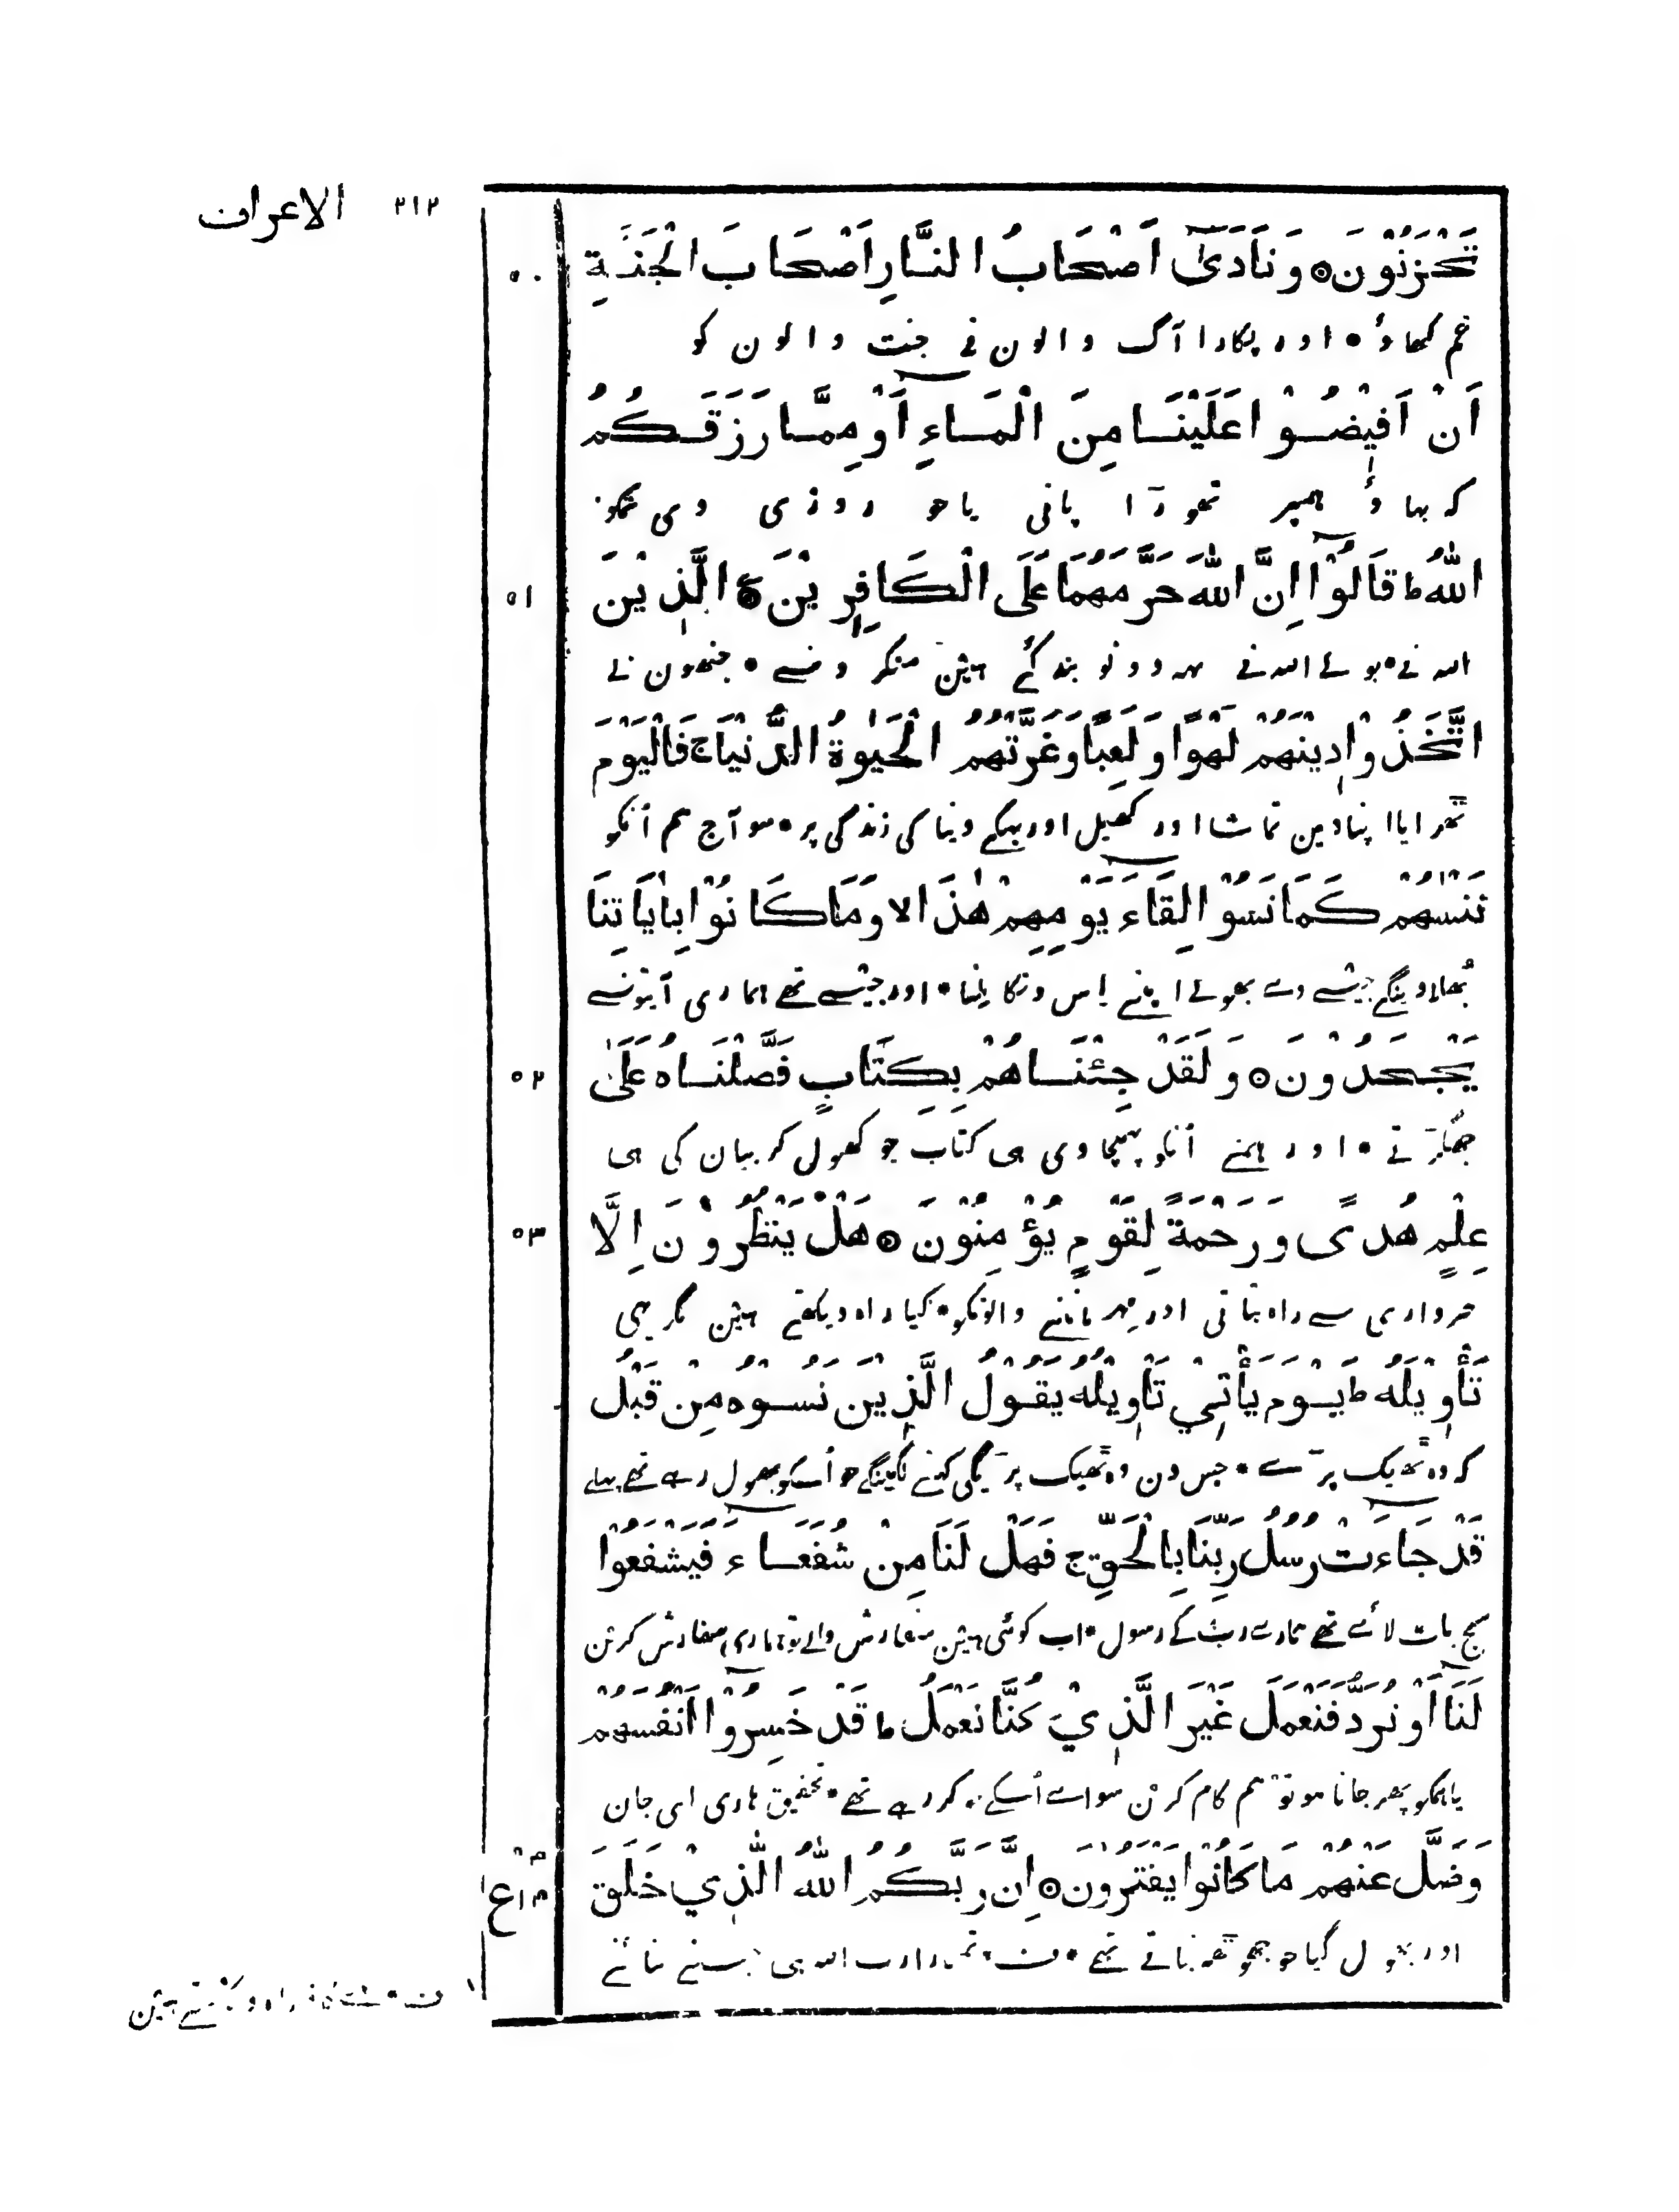 الاعراف ٢١٢
تَحْزَنُوْنَ ۞ وَنَادَىٰٓ اَصْحَابُ النَّارِ اَصْحَابَ الْجَنَّةِ ٥٠
غم کھاوٗ • اور پکارا آگ والون نے جنت والون کو
اَنْ اَفِيْضُوْا عَلَيْنَا مِنَ الْمَاءِ اَوْ مِمَّا رَزَقَكُمُ
کہ بہاوٗ ہمپر تھورا پانی یا جو روزی دی تمکو
اللّٰهُ ط قَالُوْٓا اِنَّ اللّٰهَ حَرَّمَهُمَا عَلَى الْكَافِرِيْنَ ۞ الَّذِيْنَ ٥١
اللہ نے • بولے اللہ نے یہہ دونو بند کئے ہین منکرونسے • جنھون نے
اتَّخَذُوْا دِيْنَهُمْ لَهْوًا وَلَعِبًا وَغَرَّتْهُمُ الْحَيٰوةُ الدُّنْيَا ج فَالْيَوْمَ
تھرایا اپنا دین تماشا اور کھیل اور بہکے دنیا کی زندگی پر • سو آج ہم اُنکو
نَنْسٰهُمْ كَمَا نَسُوْا لِقَاءَ يَوْمِهِمْ هٰذَا لا وَمَا كَانُوْا بِاٰيَاتِنَا
بُھلاوینگے جیسے وے بھولے اپنے اِس دنکا ملنا • اور جیسے تھے ہماری آیتونسے
يَجْحَدُوْنَ ۞ وَلَقَدْ جِئْنَاهُمْ بِكِتَابٍ فَصَّلْنَاهُ عَلٰى ٥٢
جھگرتے • اور ہمنے اُنکو پہنچادی ہی کتاب جو کھول کر بیان کی ہی
عِلْمٍ هُدًى وَرَحْمَةً لِقَوْمٍ يُؤْمِنُوْنَ ۞ هَلْ يَنْظُرُوْنَ اِلَّا ٥٣
خبرداری سے راہ بتاتی اور مہر ماننے والونکو • کیا راہ دیکھتے ہین مگر یہی
تَأْوِيْلَهُ ط يَوْمَ يَأْتِيْ تَأْوِيْلُهُ يَقُوْلُ الَّذِيْنَ نَسُوْهُ مِنْ قَبْلُ
کہ وہ تھیک پرے • جس دن وہ تھیک پریگی کہنے لگینگے جو اُسکو بھول رہے تھے پہلے
قَدْ جَاءَتْ رُسُلُ رَبِّنَا بِالْحَقِّ ج فَهَلْ لَنَا مِنْ شُفَعَاءَ فَيَشْفَعُوْا
سچ بات لائے تھے ہمارے رب کے رسول • اب کوئی ہین سفارش والے تو ہماری سفارش کرین
لَنَا اَوْ نُرَدُّ فَنَعْمَلَ غَيْرَ الَّذِيْ كُنَّا نَعْمَلُ ط قَدْ خَسِرُوْٓا اَنْفُسَهُمْ
یا ہمکو پھر جانا ہو تو ہم کام کرین سواے اُسکے جو کر رہے تھے • تحقیق ہاری اپنی جان
وَضَلَّ عَنْهُمْ مَا كَانُوْا يَفْتَرُوْنَ ۞ اِنَّ رَبَّكُمُ اللّٰهُ الَّذِيْ خَلَقَ
اور بھول گیا جو جھوتھ بناتے تھے • ف • تمہارا رب اللہ ہی جسنے بنائے
ف • راہ دیکھتے ہین